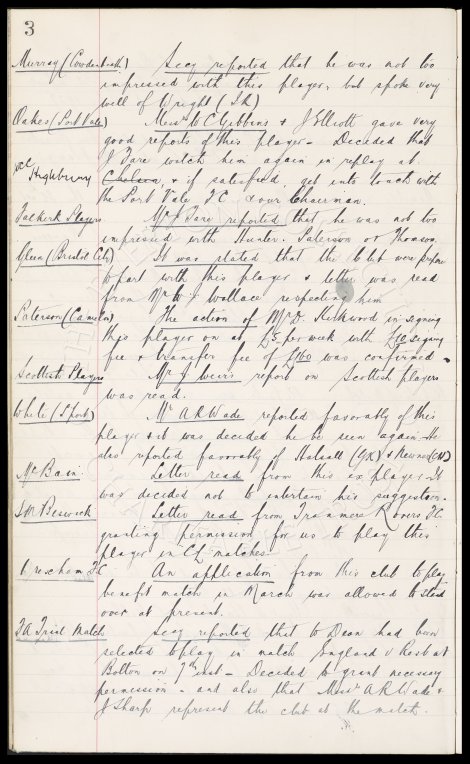 3
Murray (Cowdenbeath) Secy reported that he was not too
impressed with this player, but spoke very
well of Wright (IR)
Oakes (Port Vale) Messrs W C Gibbins & J Elliott gave very
good reports of this player - Decided that
J Fare watch him again in replay at
at Highbury Chelsea, & if satisfied, get into touch with
the Port Vale F.C. & our Chairman.
Falkirk Players Mr J Fare reported that he was not too
impressed with Hunter. Paterson or Thomson
Glen (Bristol City) It was stated that the Club were prepared
to part with this player & letter was read
from Mr Wallace respecting him
Paterson (Camelon) The action of Mr D. Kirkwood in signing
this player on at £5 per week with £10 signing
fee & transfer fee of £160 was confirmed
Scottish Players Mr J Weirs report on Scottish players
was read.
While (Sport) Mr A R Wade reported favorably of this
player & it was decided he be seen again. He
also reported favorably of Halsall (GK) & Newness (CH)
Mc Bain. Letter read from this ex player. It
was decided not to entertain his suggestion.
J.M. Beswick Letter read from Tranmere Rovers F.C.
granting permission for us to play this
player in C.L. matches.
Wrexham F.C. An application from this club to play
benefit match in March was allowed to stand
over at present.
F.A. Trial Match Secy reported that to Dean had been
selected to play in match England v Rest at
Bolton on 7th inst - Decided to grant necessary
permission - and also that Messrs A R Wade &
J Sharp represent the club at the match.